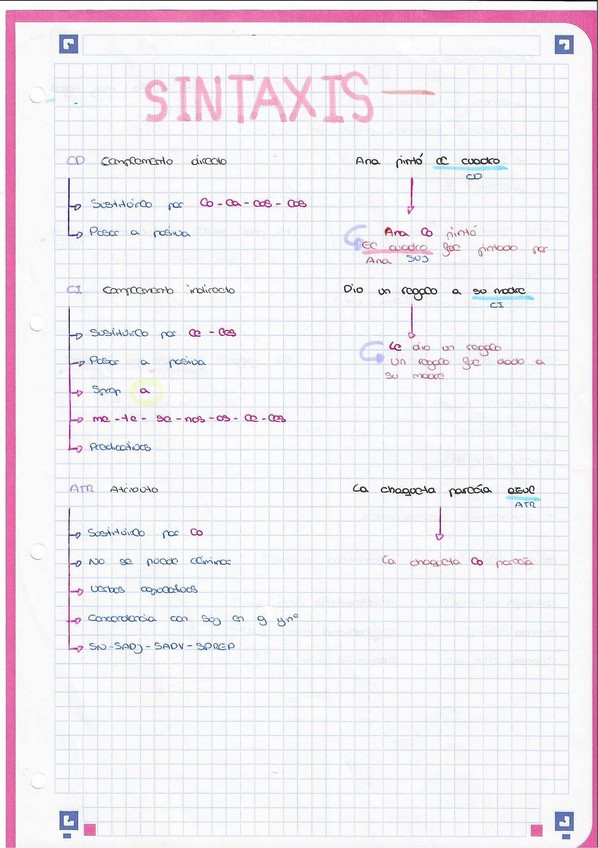 SINTAXIS
CD Complemento directo
Ana pintó el cuadro
CD
Sustituido por lo - la - los - las
Pasar a pasiva
Ana lo pintó
El cuadro fue pintado por
Ana SUJ
CI Complemento indirecto
Dio un regalo a su madre
CI
Sustituido por le - les
Le dio un regalo
Pasar a pasiva
Un regalo fue dado a
su madre
Sprep a
me - te - se - nos - os - le - les
Predicativos
ATR Atributo
La chaqueta parecía azul
ATR
Sustituido por lo
No se puede eliminar
La chaqueta lo parecía
Verbos copulativos
Concordancia con Suj en g y nº
SN - SADJ - SADV - SPREP